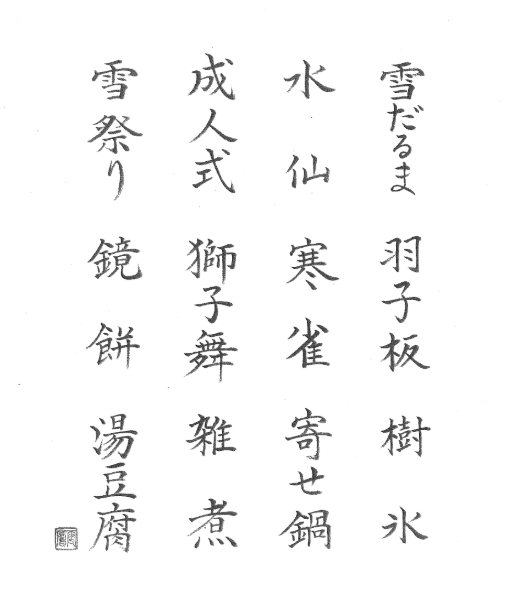 雪だるま 羽子板 樹氷
水仙 寒雀 寄せ鍋
成人式 獅子舞 雑煮
雪祭り 鏡餅 湯豆腐